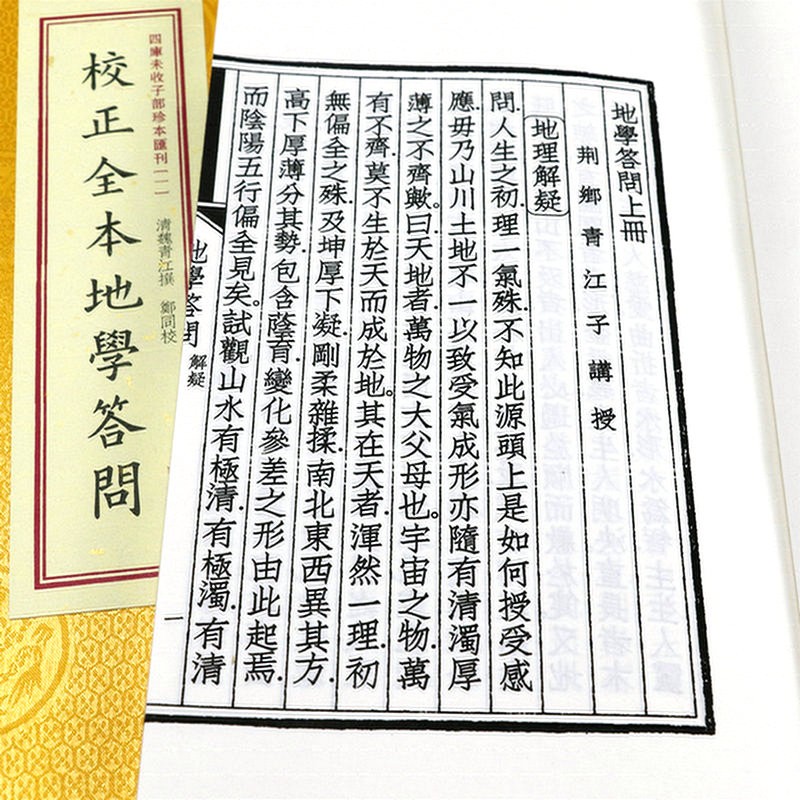 四庫未收子部珍本匯刊(一)
校正全本地學答問
清魏青江撰 鄭同校
地學答問上冊
荆鄉青江子講授
地理解疑
問.人生之初.理一氣殊.不知此源頭上是如何授受感
應.毋乃山川土地不一以致受氣成形亦隨有清濁厚
薄之不齊歟。曰.天地者.萬物之大父母也。宇宙之物.萬
有不齊.莫不生於天而成於地。其在天者.渾然一理.初
無偏全之殊.及坤厚下凝.剛柔雜揉.南北東西異其方.
高下厚薄分其勢.包含蔭育.變化參差之形由此起焉.
而陰陽五行偏全見矣。試觀山水有極清.有極濁.有清
地學答問 解疑
一